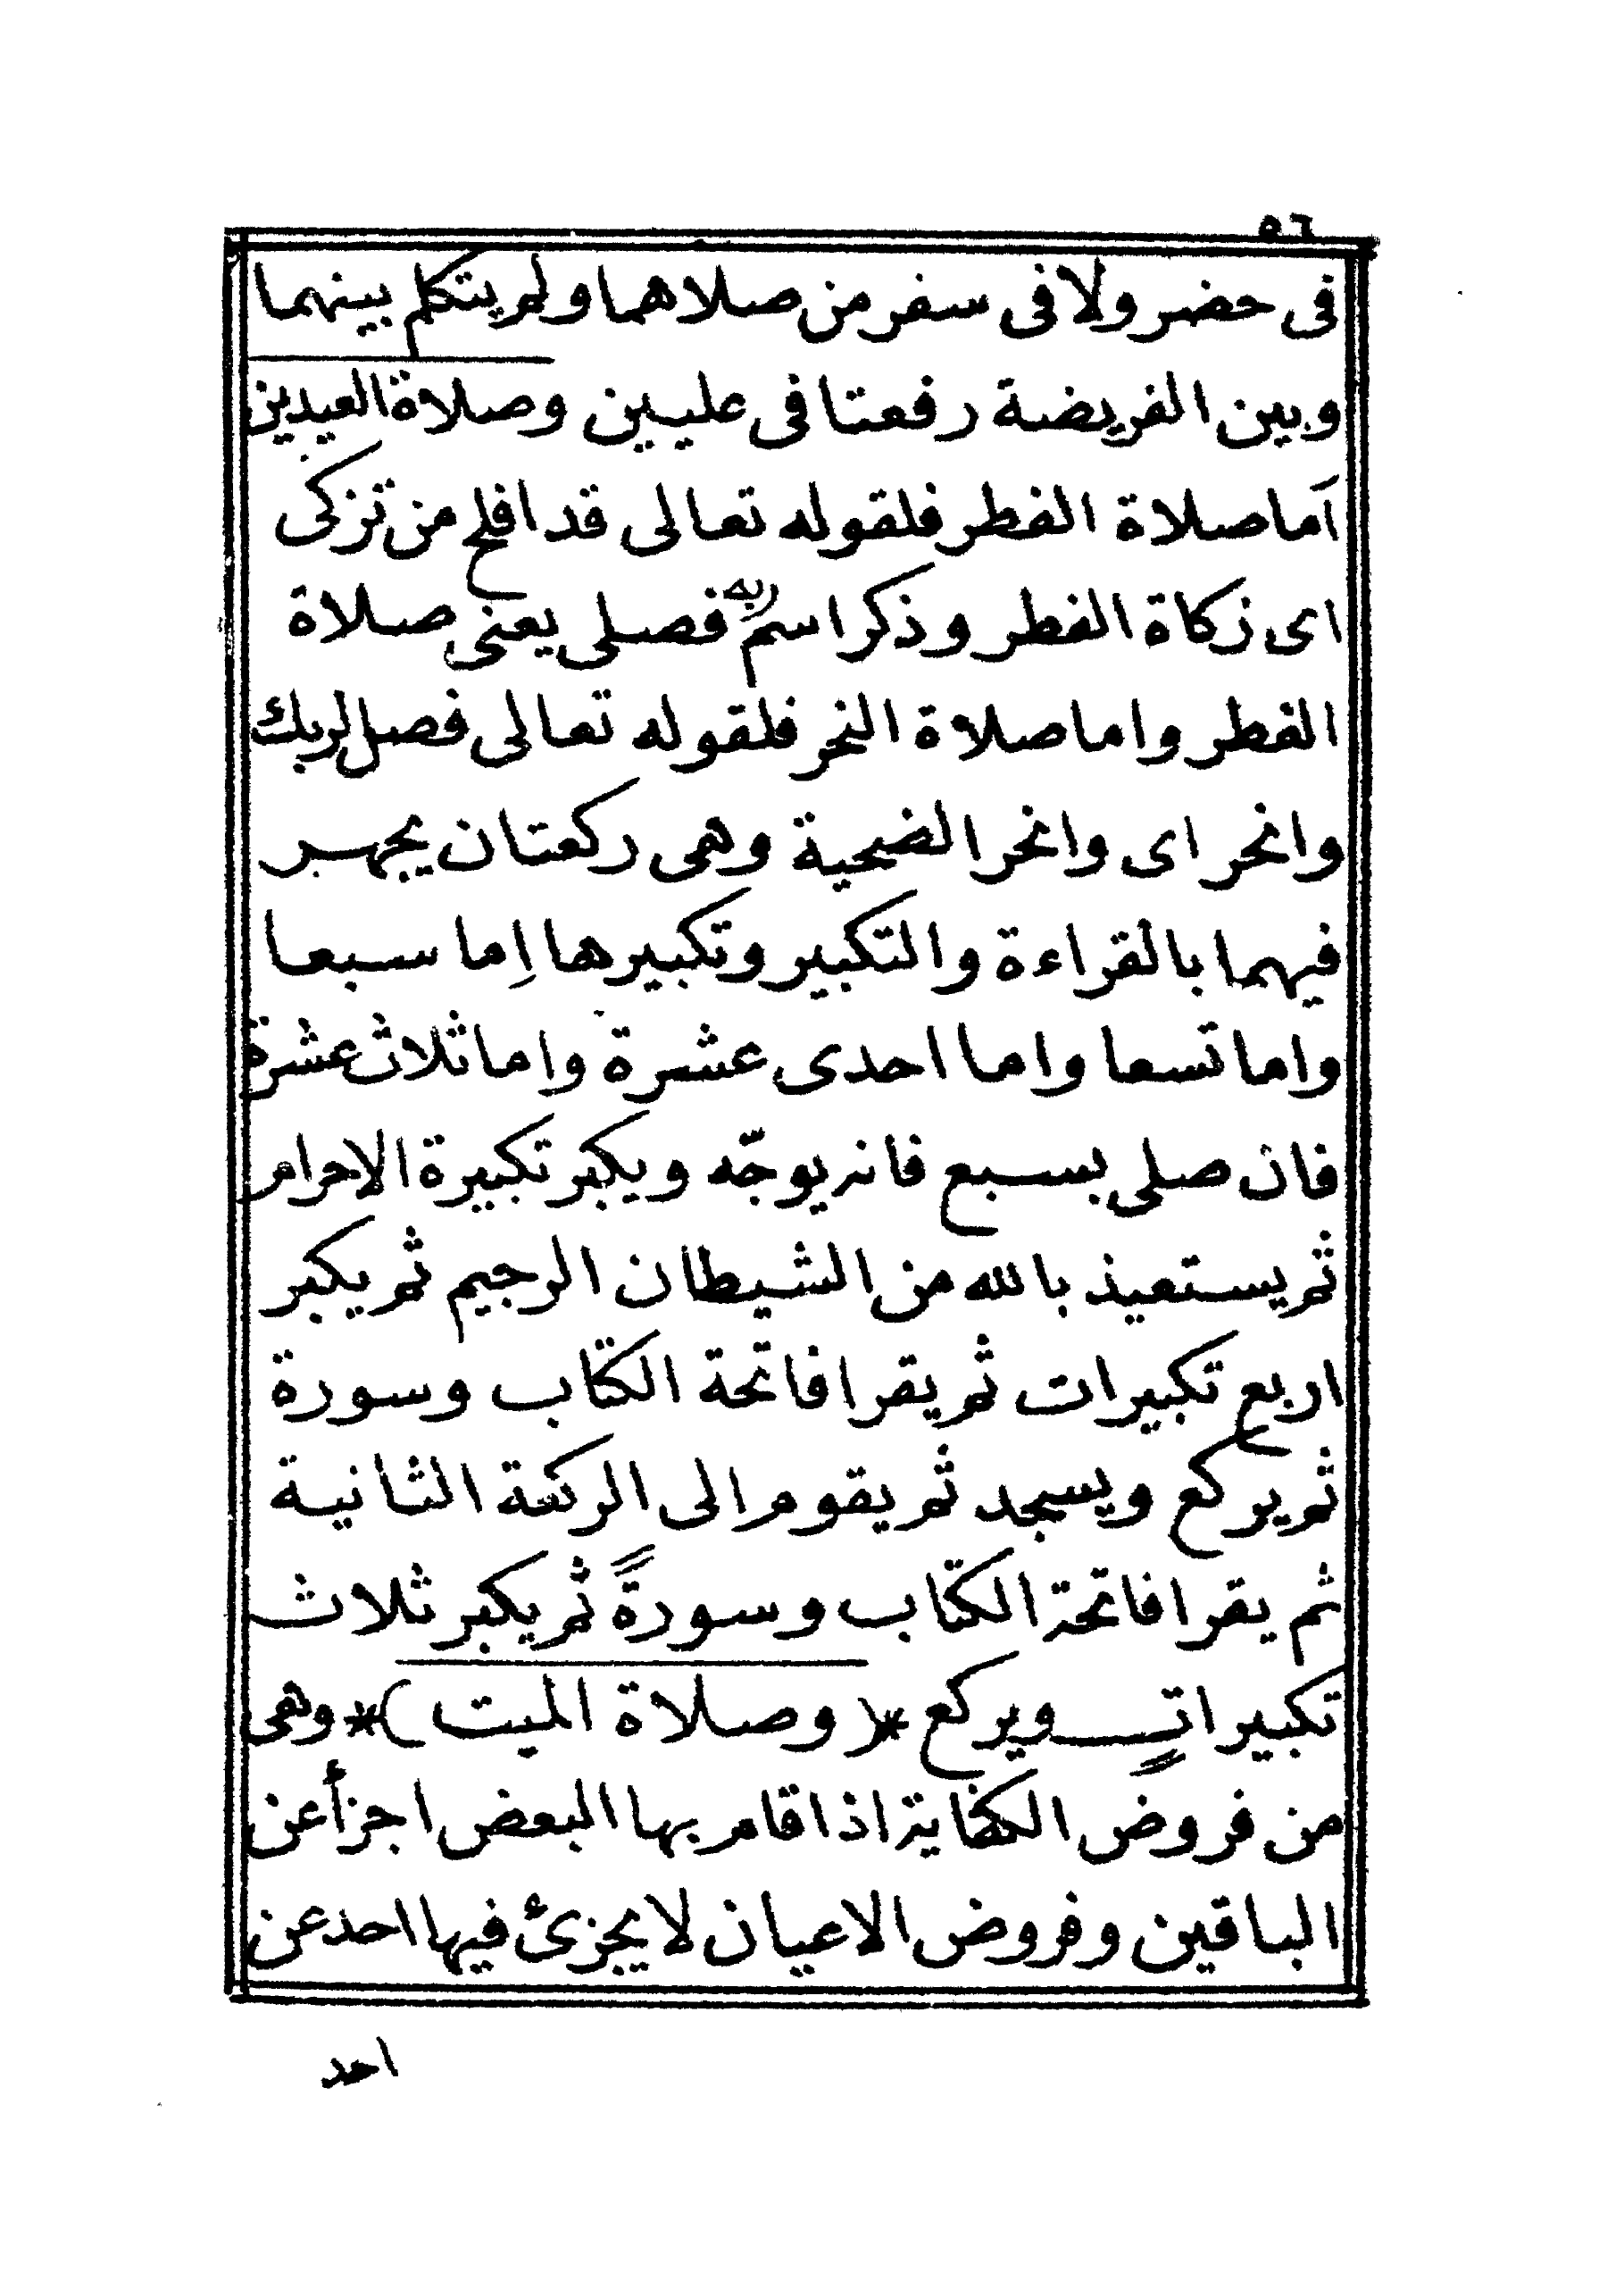 ٥٦
فى حضر ولا فى سفر من صلاهما ولم يتكلم بينهما
وبين الفريضة رفعتا فى عليين وصلاة العيدين
اَما صلاة الفطر فلقوله تعالى قد افلح من تزكى
اى زكاة الفطر وذكر اسم ربه فصلى يعنى صلاة
الفطر واما صلاة النحر فلقوله تعالى فصل لربك
وانحر اى وانحر الضحية وهى ركعتان يجهر
فيهما بالقراءة والتكبير وتكبيرها اِما سبعا
واما تسعا واما احدى عشرة واما ثلاث عشرة
فان صلى بسبع فانه يوجّه ويكبر تكبيرة الاحرام
ثم يستعيذ بالله من الشيطان الرجيم ثم يكبر
اربع تكبيرات ثم يقرا فاتحة الكتاب وسورة
ثم يركع ويسجد ثم يقوم الى الركعة الثانية
ثم يقرا فاتحة الكتاب وسورةً ثم يكبر ثلاث
تكبيراتٍ ويركع *( وصلاة الميت )* وهى
من فروض الكفاية اذا قام بها البعض اجزأ عن
الباقين وفروض الاعيان لا يجزئ فيها احد عن
احد